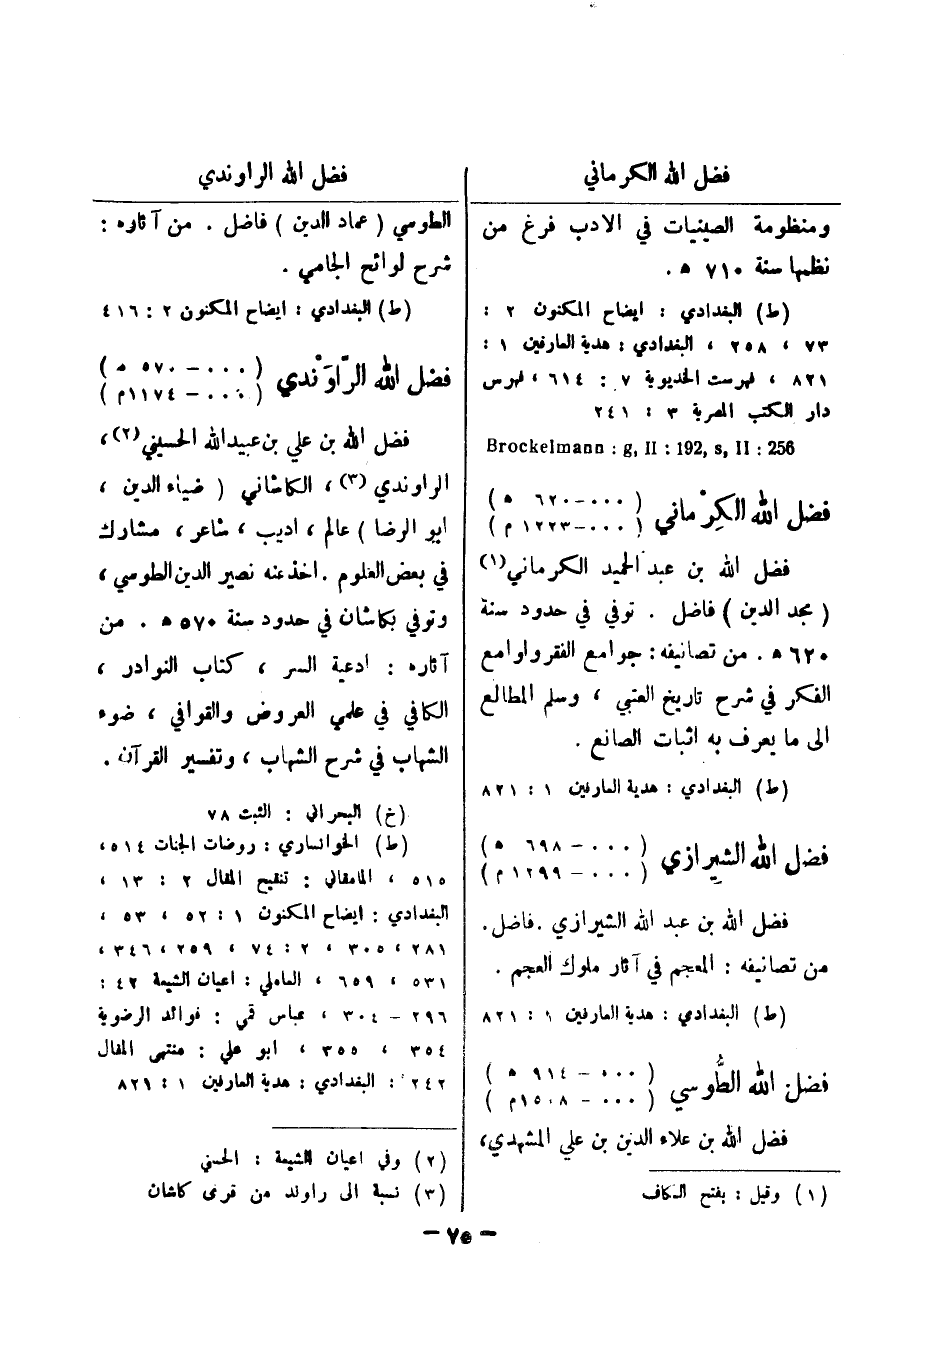 فضل الله الكرماني
ومنظومة الصينيات في الادب فرغ من
نظمها سنة ٧١٠ ه .
(ط) البغدادي : ايضاح المكنون ٢ :
٧٣ ، ٢٥٨ ، البغدادي : هدية العارفين ١ :
٨٢١ ، فهرست الخديوية ٧ : ٦١٤ ، فهرس
دار الكتب المصرية ٣ : ٢٤١
Brockelmann : g, II : 192, s, II : 256
فضل الله الكِرْماني (٠٠٠ – ٦٢٠ ه)
(٠٠٠ – ١٢٢٣ م)
فضل الله بن عبد الحميد الكرماني(١)
( مجد الدين ) فاضل . توفي في حدود سنة
٦٢٠ ه . من تصانيفه : جوامع الفقر ولوامع
الفكر في شرح تاريخ العتبي ، وسلم المطالع
الى ما يعرف به اثبات الصانع .
(ط) البغدادي : هدية العارفين ١ : ٨٢١
فضل الله الشيرازي (٠٠٠ – ٦٩٨ ه)
(٠٠٠ – ١٢٩٩ م)
فضل الله بن عبد الله الشيرازي . فاضل .
من تصانيفه : المعجم في آثار ملوك العجم .
(ط) البغدادي : هدية العارفين ١ : ٨٢١
فضل الله الطُّوسي (٠٠٠ – ٩١٤ ه)
(٠٠٠ – ١٥٠٨ م)
فضل الله بن علاء الدين بن علي المشهدي،
(١) وقيل : بفتح الكاف
فضل الله الراوندي
الطوسي ( عماد الدين ) فاضل . من آثاره :
شرح لوائح الجامي .
(ط) البغدادي : ايضاح المكنون ٢ : ٤١٦
فضل الله الرّاوَنْدي (٠٠٠ – ٥٧٠ ه)
(٠٠٠ – ١١٧٤ م)
فضل الله بن علي بن عبيدالله الحسيني(٢) ،
الراوندي (٣) ، الكاشاني ( ضياء الدين ،
ابو الرضا ) عالم ، اديب ، شاعر ، مشارك
في بعض العلوم . اخذ عنه نصير الدين الطوسي ،
وتوفي بكاشان في حدود سنة ٥٧٠ ه . من
آثاره : ادعية السر ، كتاب النوادر ،
الكافي في علمي العروض والقوافي ، ضوء
الشهاب في شرح الشهاب ، وتفسير القرآن .
(خ) البحراني : الثبت ٧٨
(ط) الخوانساري : روضات الجنات ٥١٤،
٥١٥ ، المامقاني : تنقيح المقال ٢ : ١٣ ،
البغدادي : ايضاح المكنون ١ : ٥٢ ، ٥٣ ،
٢٨١ ، ٣٠٥ ، ٢ : ٧٤ ، ٢٥٩ ، ٣٤٦ ،
٥٣١ ، ٦٥٩ ، العاملي : اعيان الشيعة ٤٢ :
٢٩٦ – ٣٠٤ ، عباس قمي : فوائد الرضوية
٣٥٤ ، ٣٥٥ ، ابو علي : منتهى المقال
٢٤٢ : البغدادي : هدية العارفين ١ : ٨٢١
(٢) وفي اعيان الشيعة : الحسني
(٣) نسبة الى راوند من قرى كاشان
– ٧٥ –